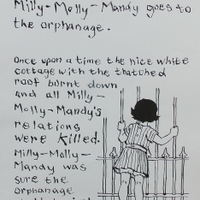 Milly-Molly-Mandy goes to
the orphanage.
Once upon a time the nice white
cottage with the thatched
roof burnt down
and all Milly-
Molly-Mandy's
relations
were killed.
Milly-Molly-
Mandy was
sure the
orphanage